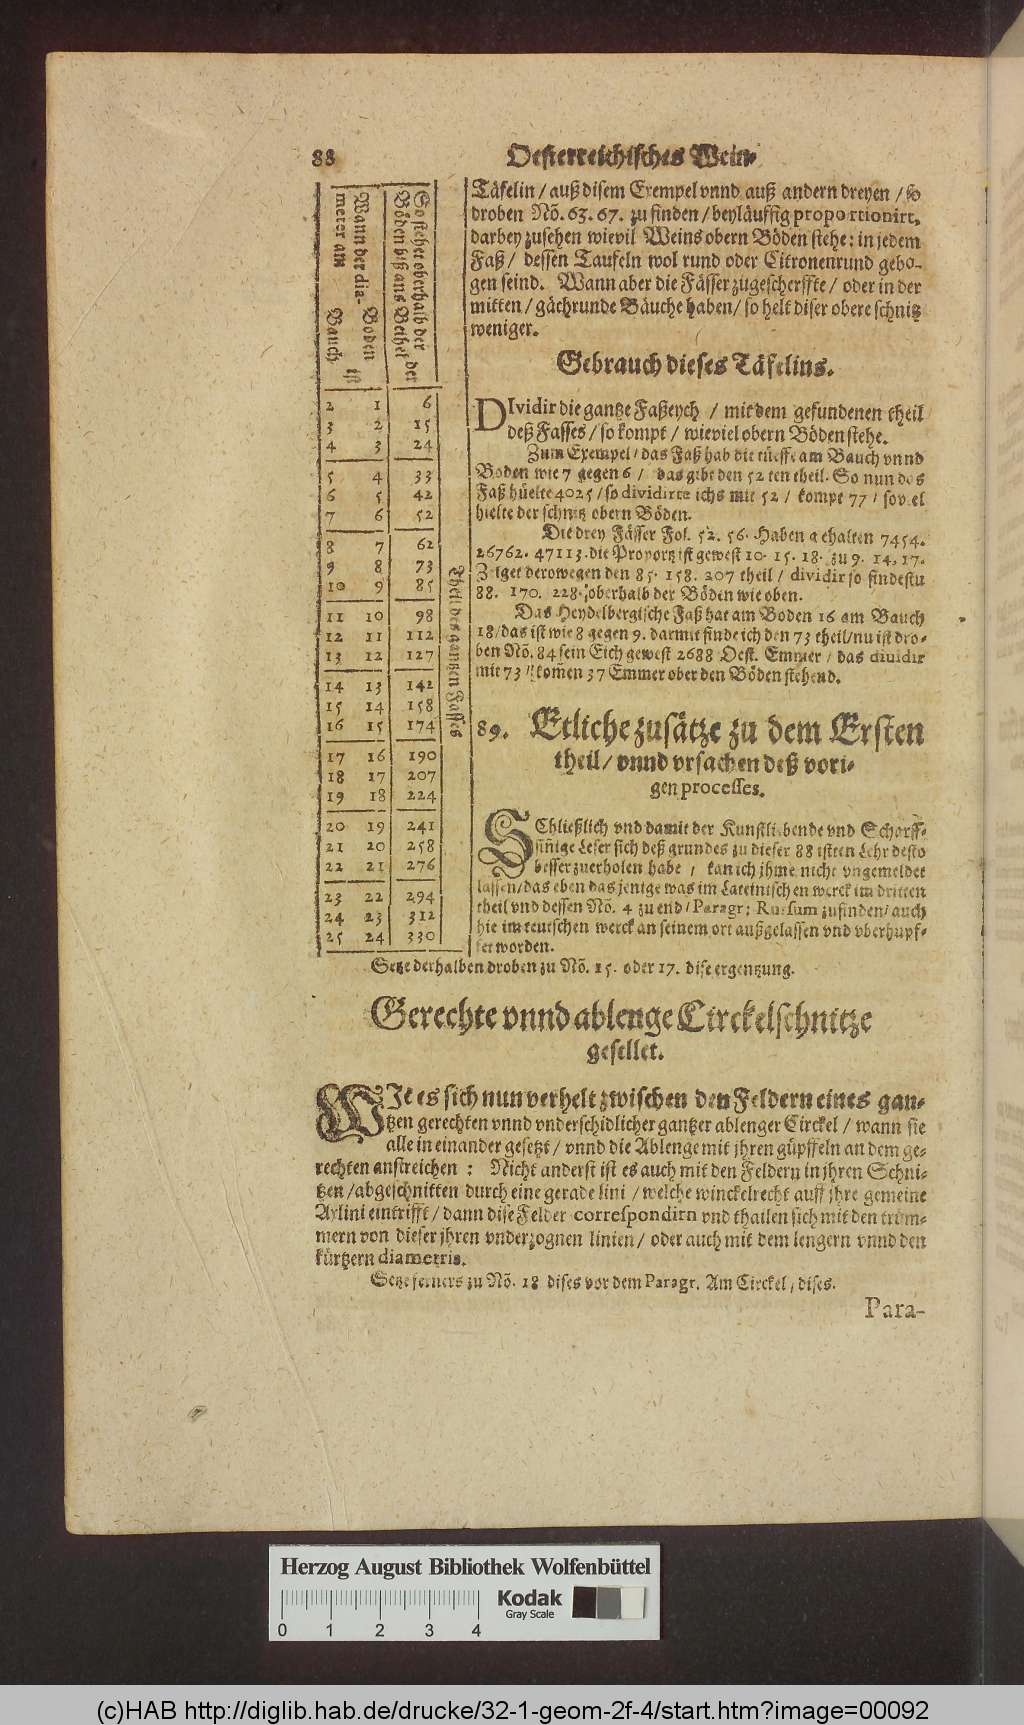 88 Oesterreichisches Wein-
Wann der dia- Boden ist
meter am Bauch
So stehet oberhalb der
Böden biß ans Beihel der
2 1 6
3 2 15
4 3 24
5 4 33
6 5 42
7 6 52
8 7 62
9 8 73
10 9 85
11 10 98
12 11 112
13 12 127
14 13 142
15 14 158
16 15 174
17 16 190
18 17 207
19 18 224
20 19 241
21 20 258
22 21 276
23 22 294
24 23 312
25 24 330
theil des gantzen Fasses
Täfelin / auß disem Exempel vnnd auß andern dreyen / so
droben Nõ. 63. 67. zu finden / beyläuffig proportionirt,
darbey zusehen wievil Weins obern Böden stehe: in jedem
Faß / dessen Taufeln wol rund oder Citronenrund gebo-
gen seind. Wann aber die Fässer zugescherffte / oder in der
mitten / gächrunde Bäuche haben / so helt diser obere schnitz
weniger.
Gebrauch dieses Täfelins.
DIvidir die gantze Faßeych / mit dem gefundenen theil
deß Fasses / so kompt / wieviel obern Böden stehe.
Zum Exempel / das Faß hab die tüeffe am Bauch vnnd
Boden wie 7 gegen 6 / das gibt den 52 ten theil. So nun das
Faß hüelte 4025 / so dividirte ichs mit 52 / kompt 77 / soviel
hielte der schnitz obern Böden.
Die drey Fässer Fol. 52. 56. Haben gehalten 7454.
26762. 47113. die Proportz ist gewest 10. 15. 18. zu 9. 14, 17.
Zeiget derowegen den 85. 158. 207 theil / dividir so findestu
88. 170. 228. oberhalb der Böden wie oben.
Das Heydelbergische Faß hat am Boden 16 am Bauch
18 / das ist wie 8 gegen 9. darmit finde ich den 73 theil / nu ist dro-
ben Nõ. 84 sein Eich gewest 2688 Oest. Emmer / das dividir
mit 73 / kom̃en 37 Emmer ober den Böden stehend.
89. Etliche zusätze zu dem Ersten
theil / vnnd vrsachen deß vori-
gen processes.
SChließlich vnd damit der Kunstliebende vnd Scharff-
sin̄ige Leser sich deß grundes zu dieser 88 isten Lehr desto
besser zuerholen habe / kan ich jhme nicht vngemeldet
lassen / das eben das jenige was im Lateinischen werck im dritten
theil vnd dessen Nõ. 4 zu end / Paragr: Rursum zufinden / auch
hie im teutschen werck an seinem ort außgelassen vnd vberhupf-
fet worden.
Setze derhalben droben zu Nõ. 15. oder 17. dise ergentzung.
Gerechte vnnd ablenge Circkelschnitze
gesellet.
WJe es sich nun verhelt zwischen den Feldern eines gan-
tzen gerechten vnnd vnderschidlicher gantzer ablenger Circkel / wann sie
alle in einander gesetzt / vnnd die Ablenge mit jhren güpffeln an dem ge-
rechten anstreichen : Nicht anderst ist es auch mit den Feldern in jhren Schni-
tzen / abgeschnitten durch eine gerade lini / welche winckelrecht auff jhre gemeine
Axlini eintrifft / dann dise Felder correspondirn vnd thailen sich mit den trüm-
mern von dieser jhren vnderzognen linien / oder auch mit dem lengern vnnd den
kürtzern diametris.
Setze ferners zu Nõ. 18 dises vor dem Paragr. Am Circkel, dises.
Para-
Herzog August Bibliothek Wolfenbüttel
Kodak
Gray Scale
0 1 2 3 4
(c)HAB http://diglib.hab.de/drucke/32-1-geom-2f-4/start.htm?image=00092